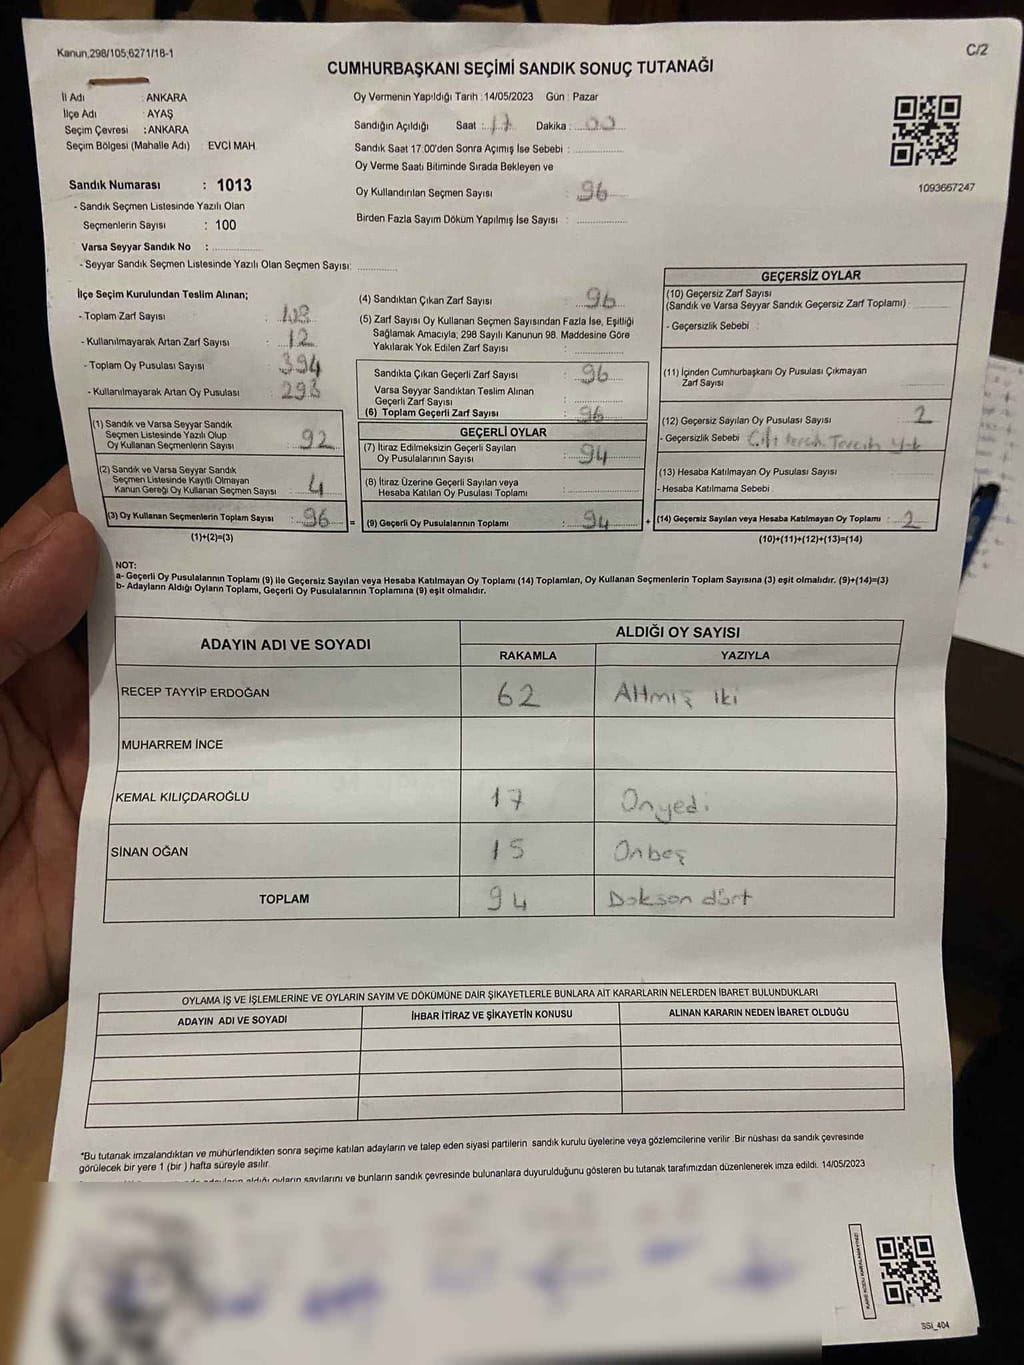 Kanun,298/105;6271/18-1
C/2
CUMHURBAŞKANI SEÇİMİ SANDIK SONUÇ TUTANAĞI
İl Adı : ANKARA
İlçe Adı : AYAŞ
Seçim Çevresi : ANKARA
Seçim Bölgesi (Mahalle Adı) : EVCİ MAH.
Oy Vermenin Yapıldığı Tarih :14/05/2023 Gün : Pazar
Sandığın Açıldığı Saat : 17 Dakika : 00
Sandık Saat 17.00'den Sonra Açımış İse Sebebi :
Oy Verme Saati Bitiminde Sırada Bekleyen ve
Oy Kullandırılan Seçmen Sayısı : 96
Birden Fazla Sayım Döküm Yapılmış İse Sayısı :
1093667247
Sandık Numarası : 1013
- Sandık Seçmen Listesinde Yazılı Olan
Seçmenlerin Sayısı : 100
Varsa Seyyar Sandık No :
- Seyyar Sandık Seçmen Listesinde Yazılı Olan Seçmen Sayısı:
İlçe Seçim Kurulundan Teslim Alınan;
- Toplam Zarf Sayısı :
- Kullanılmayarak Artan Zarf Sayısı : 12
- Toplam Oy Pusulası Sayısı : 394
- Kullanılmayarak Artan Oy Pusulası : 293
(1) Sandık ve Varsa Seyyar Sandık
Seçmen Listesinde Yazılı Olup
Oy Kullanan Seçmenlerin Sayısı : 92
(2) Sandık ve Varsa Seyyar Sandık
Seçmen Listesinde Kayıtlı Olmayan
Kanun Gereği Oy Kullanan Seçmen Sayısı : 4
(3) Oy Kullanan Seçmenlerin Toplam Sayısı : 96
(1)+(2)=(3)
(4) Sandıktan Çıkan Zarf Sayısı : 96
(5) Zarf Sayısı Oy Kullanan Seçmen Sayısından Fazla İse, Eşitliği
Sağlamak Amacıyla; 298 Sayılı Kanunun 98. Maddesine Göre
Yakılarak Yok Edilen Zarf Sayısı :
Sandıkta Çıkan Geçerli Zarf Sayısı : 96
Varsa Seyyar Sandıktan Teslim Alınan
Geçerli Zarf Sayısı :
(6) Toplam Geçerli Zarf Sayısı : 96
GEÇERLİ OYLAR
(7) İtiraz Edilmeksizin Geçerli Sayılan
Oy Pusulalarının Sayısı : 94
(8) İtiraz Üzerine Geçerli Sayılan veya
Hesaba Katılan Oy Pusulası Toplamı :
= (9) Geçerli Oy Pusulalarının Toplamı : 94 +
GEÇERSİZ OYLAR
(10) Geçersiz Zarf Sayısı
(Sandık ve Varsa Seyyar Sandık Geçersiz Zarf Toplamı) :
- Geçersizlik Sebebi :
(11) İçinden Cumhurbaşkanı Oy Pusulası Çıkmayan
Zarf Sayısı :
(12) Geçersiz Sayılan Oy Pusulası Sayısı : 2
- Geçersizlik Sebebi : Çift tercih Tercih yok
(13) Hesaba Katılmayan Oy Pusulası Sayısı :
- Hesaba Katılmama Sebebi :
(14) Geçersiz Sayılan veya Hesaba Katılmayan Oy Toplamı : 2
(10)+(11)+(12)+(13)=(14)
NOT:
a- Geçerli Oy Pusulalarının Toplamı (9) ile Geçersiz Sayılan veya Hesaba Katılmayan Oy Toplamı (14) Toplamları, Oy Kullanan Seçmenlerin Toplam Sayısına (3) eşit olmalıdır. (9)+(14)=(3)
b- Adayların Aldığı Oyların Toplamı, Geçerli Oy Pusulalarının Toplamına (9) eşit olmalıdır.
ADAYIN ADI VE SOYADI
ALDIĞI OY SAYISI
RAKAMLA YAZIYLA
RECEP TAYYİP ERDOĞAN 62 Altmış iki
MUHARREM İNCE
KEMAL KILIÇDAROĞLU 17 Onyedi
SİNAN OĞAN 15 Onbeş
TOPLAM 94 Dokson dört
OYLAMA İŞ VE İŞLEMLERİNE VE OYLARIN SAYIM VE DÖKÜMÜNE DAİR ŞİKAYETLERLE BUNLARA AİT KARARLARIN NELERDEN İBARET BULUNDUKLARI
ADAYIN ADI VE SOYADI İHBAR İTİRAZ VE ŞİKAYETİN KONUSU ALINAN KARARIN NEDEN İBARET OLDUĞU
*Bu tutanak imzalandıktan ve mühürlendikten sonra seçime katılan adayların ve talep eden siyasi partilerin sandık kurulu üyelerine veya gözlemcilerine verilir Bir nüshası da sandık çevresinde
görülecek bir yere 1 (bir ) hafta süreyle asılır.
aldığı oyların sayılarını ve bunların sandık çevresinde bulunanlara duyurulduğunu gösteren bu tutanak tarafımızdan düzenlenerek imza edildi. 14/05/2023
SSİ_404